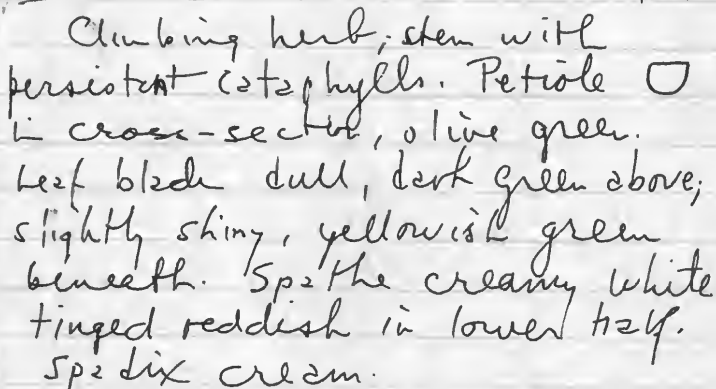 Climbing herb; stem with
persistent cataphylls. Petiole
in cross-section, olive green.
Leaf blade dull, dark green above;
slightly shiny, yellowish green
beneath. Spathe creamy white
tinged reddish in lower half.
Spadix cream.